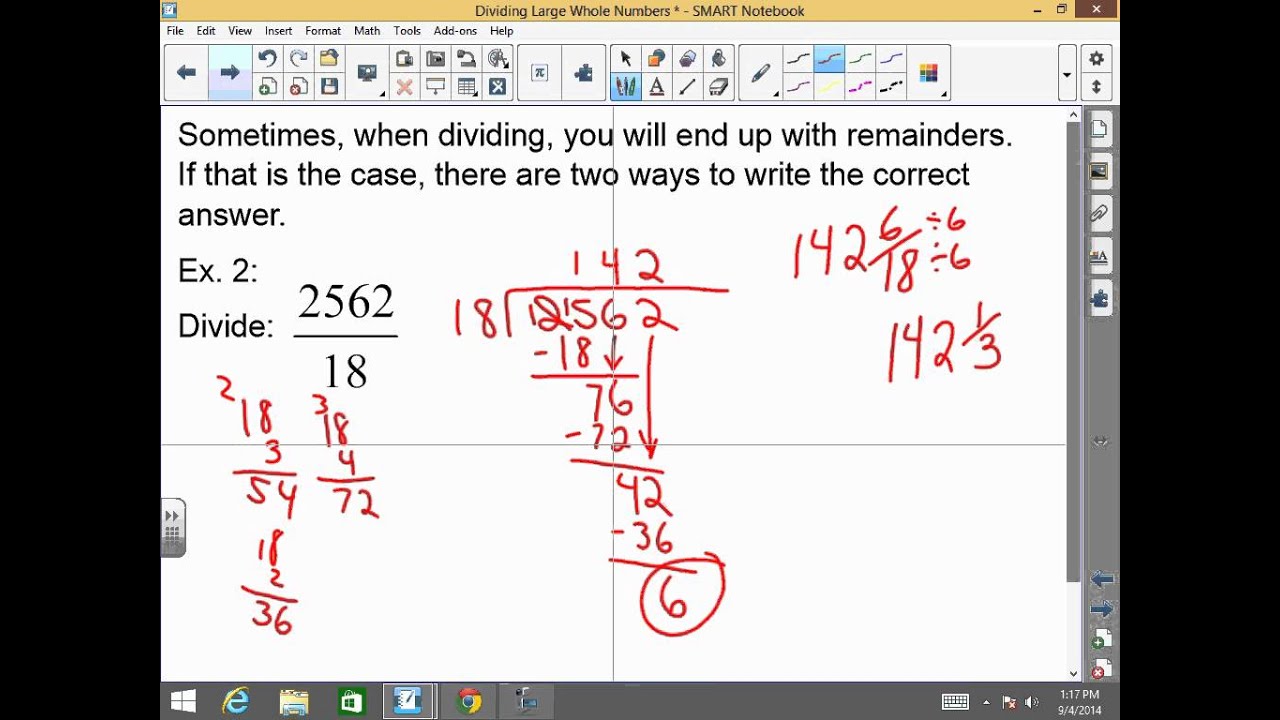 Dividing Large Whole Numbers * - SMART Notebook
File Edit View Insert Format Math Tools Add-ons Help
Sometimes, when dividing, you will end up with remainders.
If that is the case, there are two ways to write the correct
answer.
Ex. 2:
Divide:
2562
18
142
18
2562
-18
76
-72
42
-36
6
2
18
3
54
3
18
4
72
18
2
36
142 6/18 ÷6
÷6
142 1/3
1:17 PM
9/4/2014